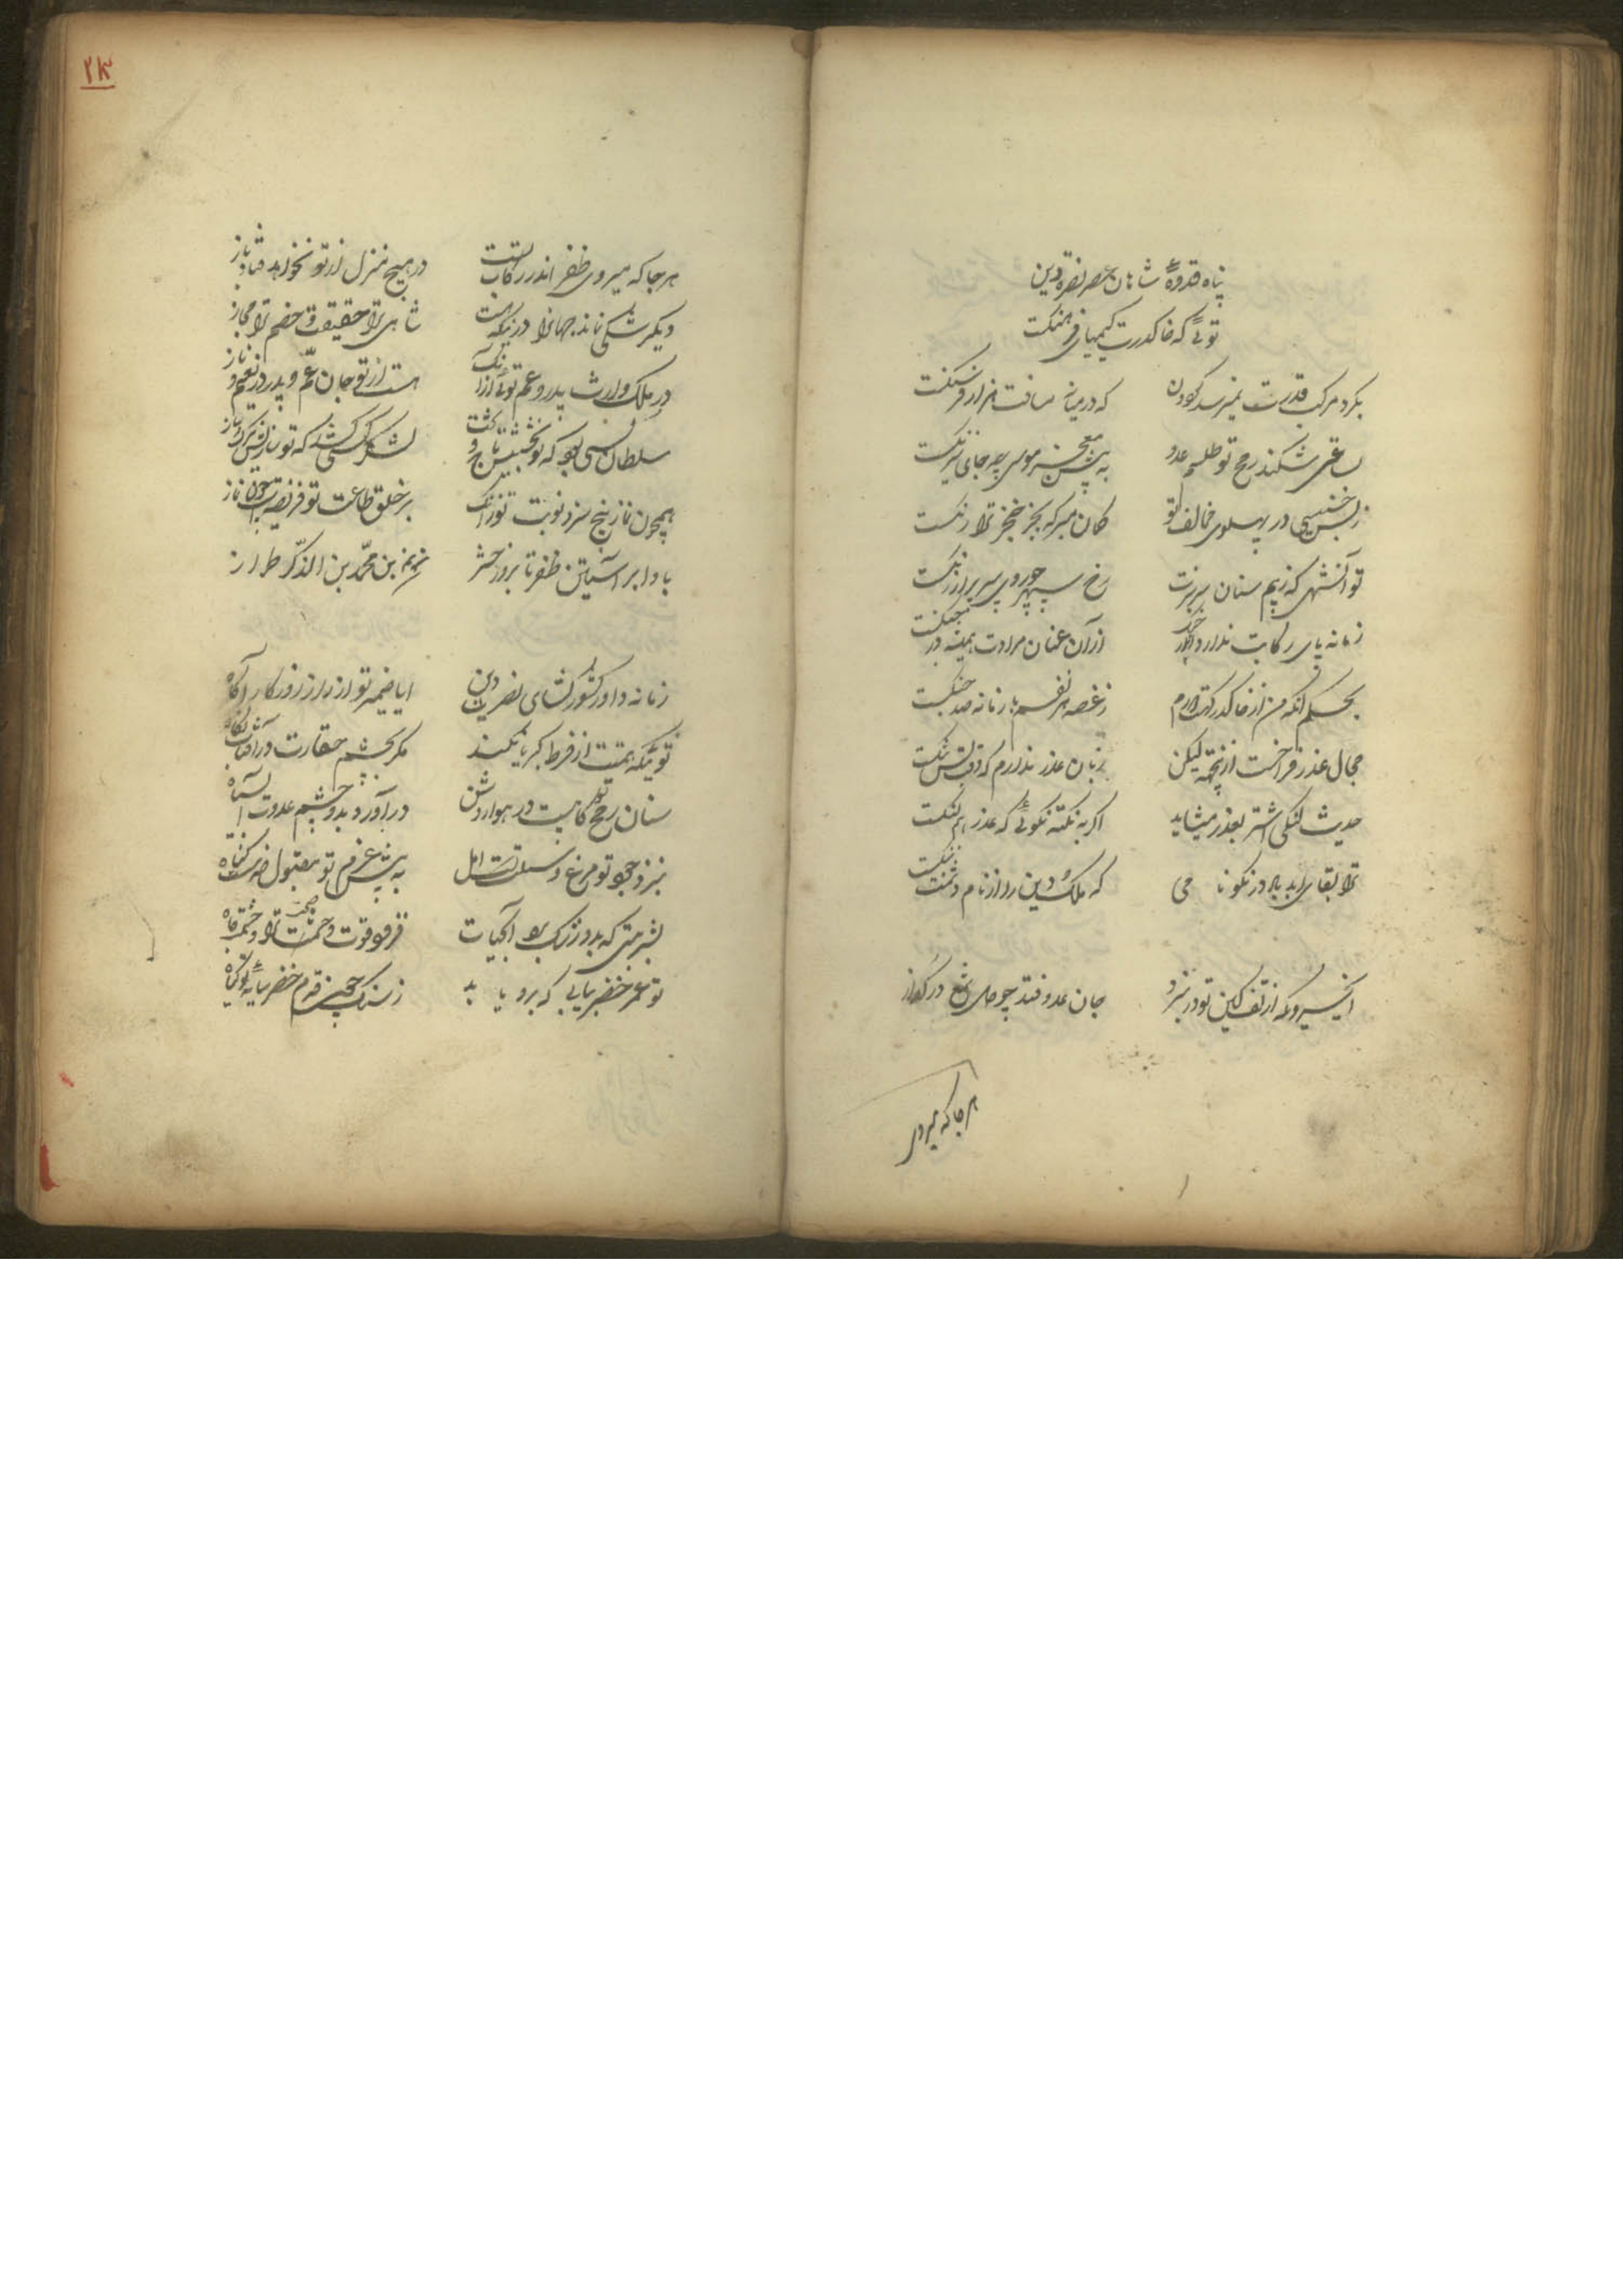 پناه و قدوهٔ شاهان عصر نصرة دین
توئی که خاک درت کیمیای فرهنگست
بگرد مرکب قدرت نمیرسد گردون
که در میانه مسافت هزار فرسنگست
طلسم عدو
به پیش معجز موسی چه جای نیرنگست
در پهلوی مخالف تو
گمان مبر که بجز خنجر ترا رنگست
تو آن شهی که ز بیم سنان سر تیزت
رخ سپهر چو روی سپر پر آژنگست
زمانه پای رکابت ندارد
از آن عنان مرادت همیشه در چنگست
بحکم آنکه من از خاک درگهت دورم
ز غصه هر نفسم با زمانه صد جنگست
مجال عذر فراخست از نچه لیکن
زبان عذر ندارم که قافیتش تنگست
حدیث لنگی اشتر بعذر میشاید
اگر به نکته نگوئی که عذر هم لنگست
ترا بقای ابد باد در نکو نامی
که ملک و دین را از نام دشمنت ننگست
ای خسروی که از تف کین تو در نبرد
جان عدو فتد چو دل شمع در گداز
هرجا که میروی
۲۳
هرجا که میروی ظفر اندر رکاب تست
در هیچ منزل از تو نخواهد فتاد باز
دیگر شکی نماند جهانرا در آنکه هست
شاهی ترا حقیقت و خصم ترا مجاز
در ملک وارث پدر و عم توئی از آنک
هست از تو جان عم و پدر در نعیم و ناز
سلطان کسی بود که تو بخشیش تاج و تخت
لشکر کشی کسی که تو بازش برک و ساز
همچون نماز پنج سزد نوبت تو زانک
بر خلق طاعت تو فریضه است چون نماز
بادا بر آستین ظفر تا بروز حشر
بن محمد بن الدکز طراز
زمانه داور کشورگشای نصرت دین
ایا ضمیر تو از راز روزگار آگاه
توئی که همتت از فرط کبریا نکند
مگر بچشم حقارت در آفتاب نگاه
سنان رمح تو گاهیست در هوا روشن
درآورد بدو چشم عدوت آب سیاه
بنزد جود تو مرغ وسیلتست امل
به پیش عزم تو مقبول ضربتست گناه
بشربتی که بدو زنگ بود آب حیات
فزود قوت و حشمت ترا و حشمت و جاه
تو عمر خضر بیابی که بروباید
ز سنگ چون قدم خضر سایهٔ تو گیاه